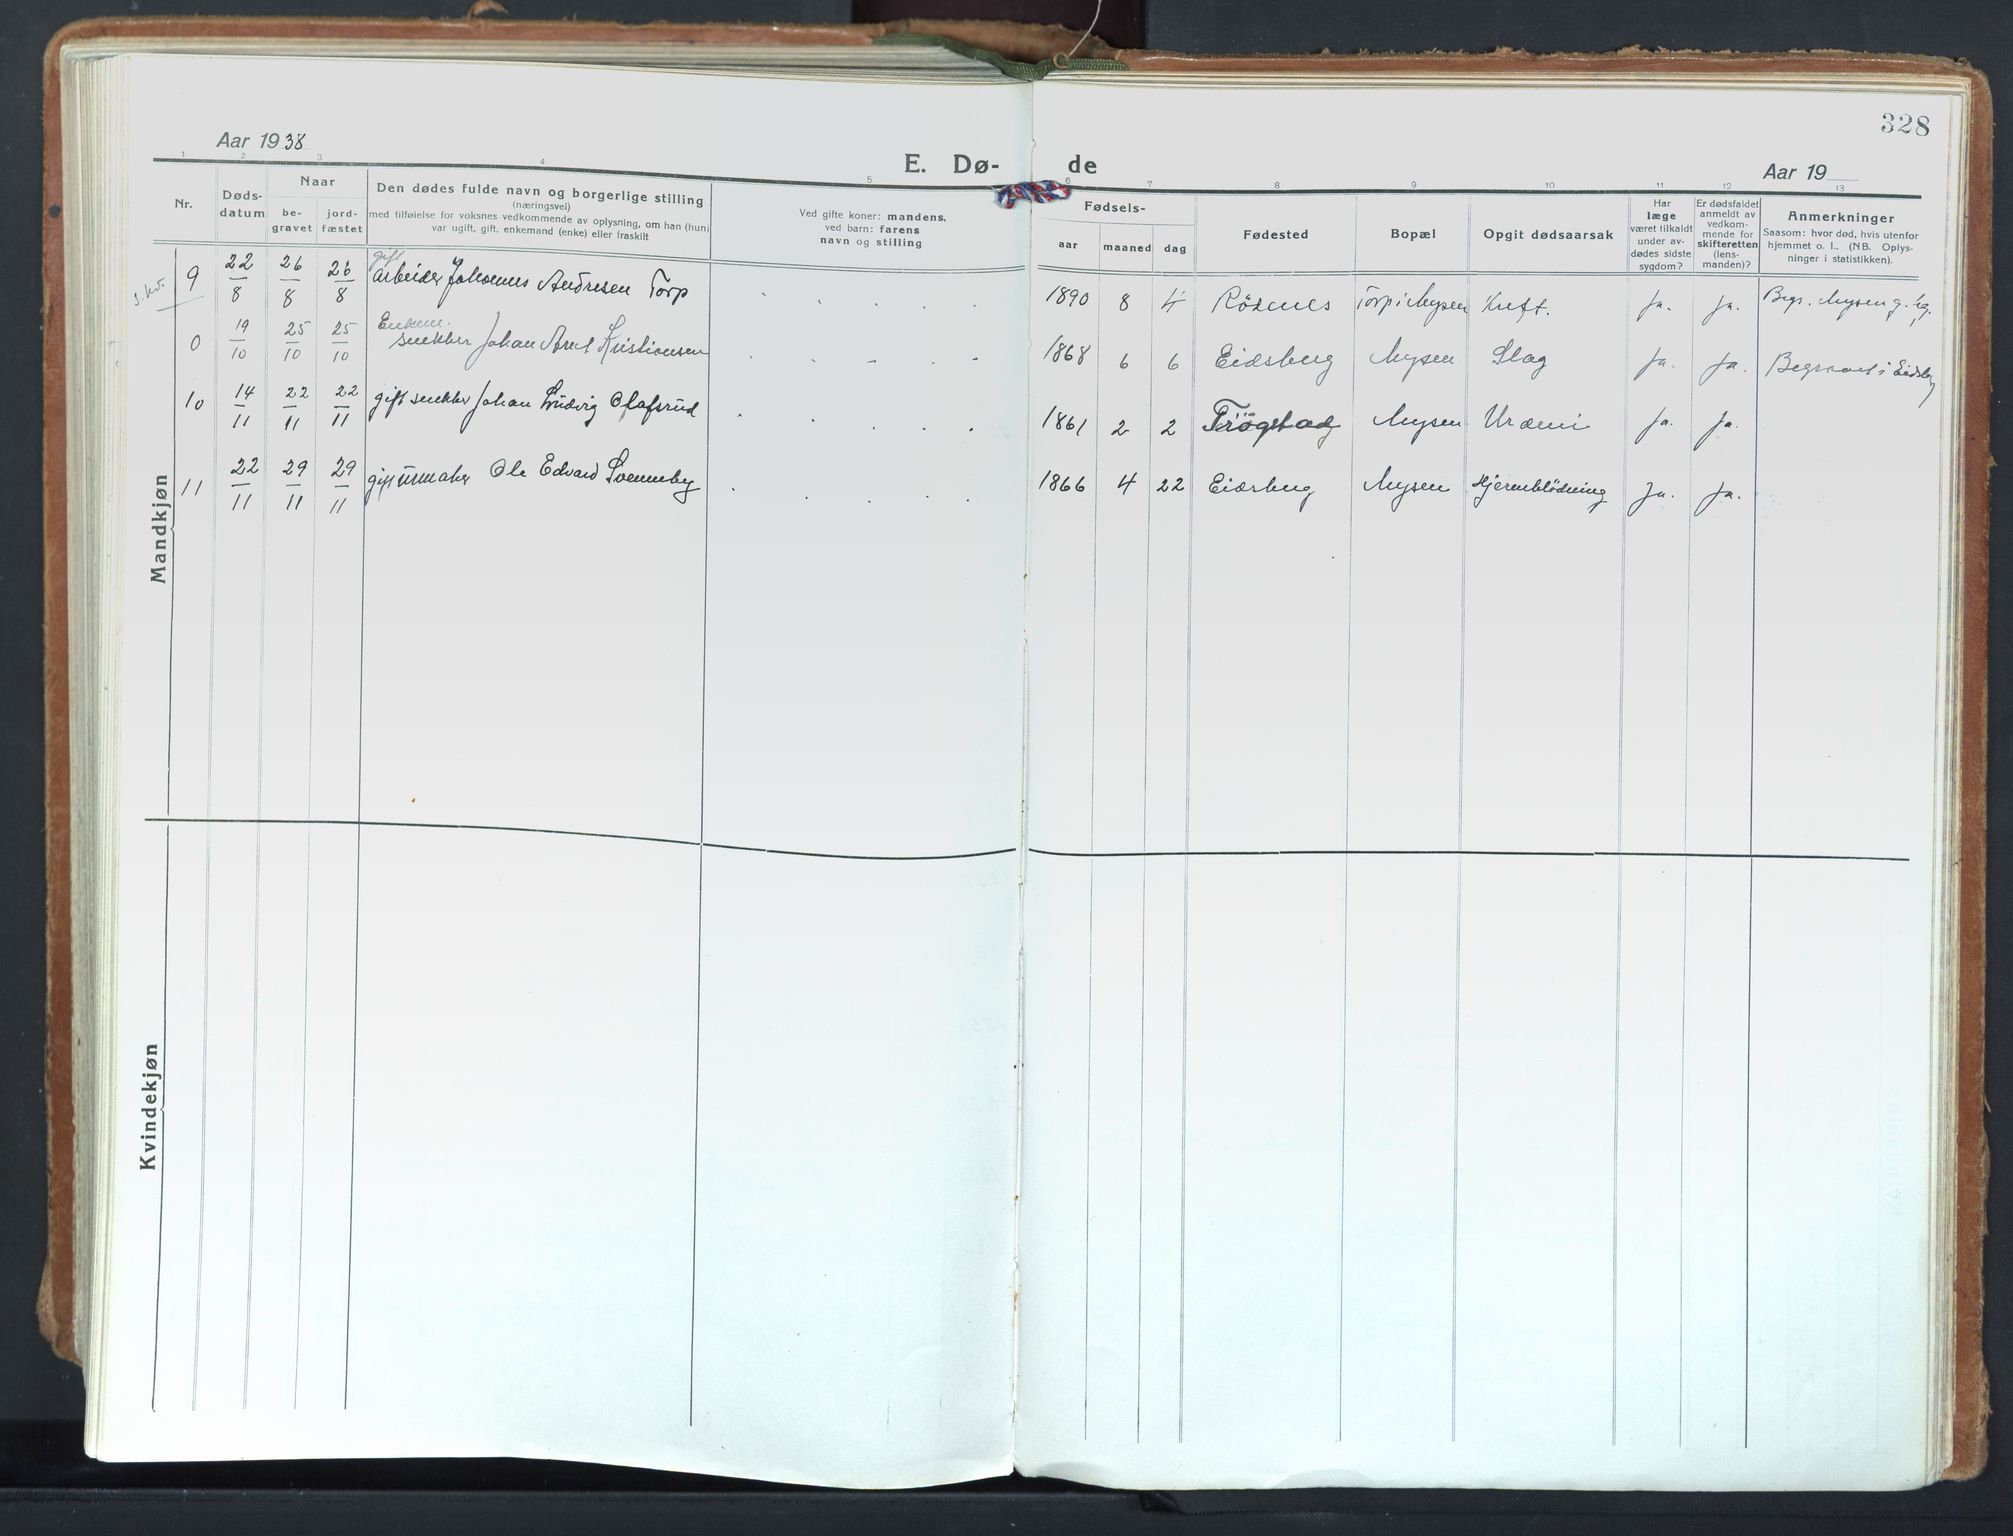 328
Aar 1938
E. Dø- de
Aar 19
1 2 3 4 5 6 7 8 9 10 11 12 13
Nr.
Døds-
datum
Naar
be-
gravet
jord-
fæstet
Den dødes fulde navn og borgerlige stilling
(næringsvei)
med tilføielse for voksnes vedkommende av oplysning, om han (hun)
var ugift, gift, enkemand (enke) eller fraskilt
Ved gifte koner: mandens,
ved barn: farens
navn og stilling
Fødsels-
aar maaned dag
Fødested
Bopæl
Opgit dødsaarsak
Har
læge
været tilkaldt
under av-
dødes sidste
sygdom?
Er dødsfaldet
anmeldt av
vedkom-
mende for
skifteretten
(lens-
manden)?
Anmerkninger
Saasom: hvor død, hvis utenfor
hjemmet o. l., (NB. Oplys-
ninger i statistikken).
Mandkjøn
9 22/8 26/8 26/8 gift arbeider Johannes Andresen Torp 1890 8 4 Rödenes Torp i Mysen Kreft. Ja. Ja. Begr. Mysen g. kg.
0 19/10 25/10 25/10 Enkem. snekker Johan Arnt Kristiansen 1868 6 6 Eidsberg Mysen Slag Ja. Ja. Begravet i Eidsberg
10 14/11 22/11 22/11 gift snekker Johan Ludvig Olafsrud 1861 2 2 Trögstad Mysen Uræmi Ja. Ja.
11 22/11 29/11 29/11 gift urmaker Ole Edvard Svenneby 1866 4 22 Eidsberg Mysen Hjerneblödning Ja. Ja.
Kvindekjøn